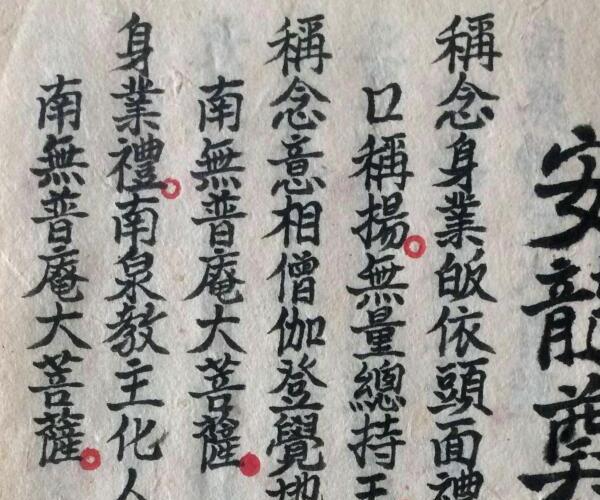 安龍奠
稱念身業皈依頭面禮
口稱揚無量總持王
稱念意相僧伽登覺地
南無普庵大菩薩
身業禮南泉教主化人
南無普庵大菩薩